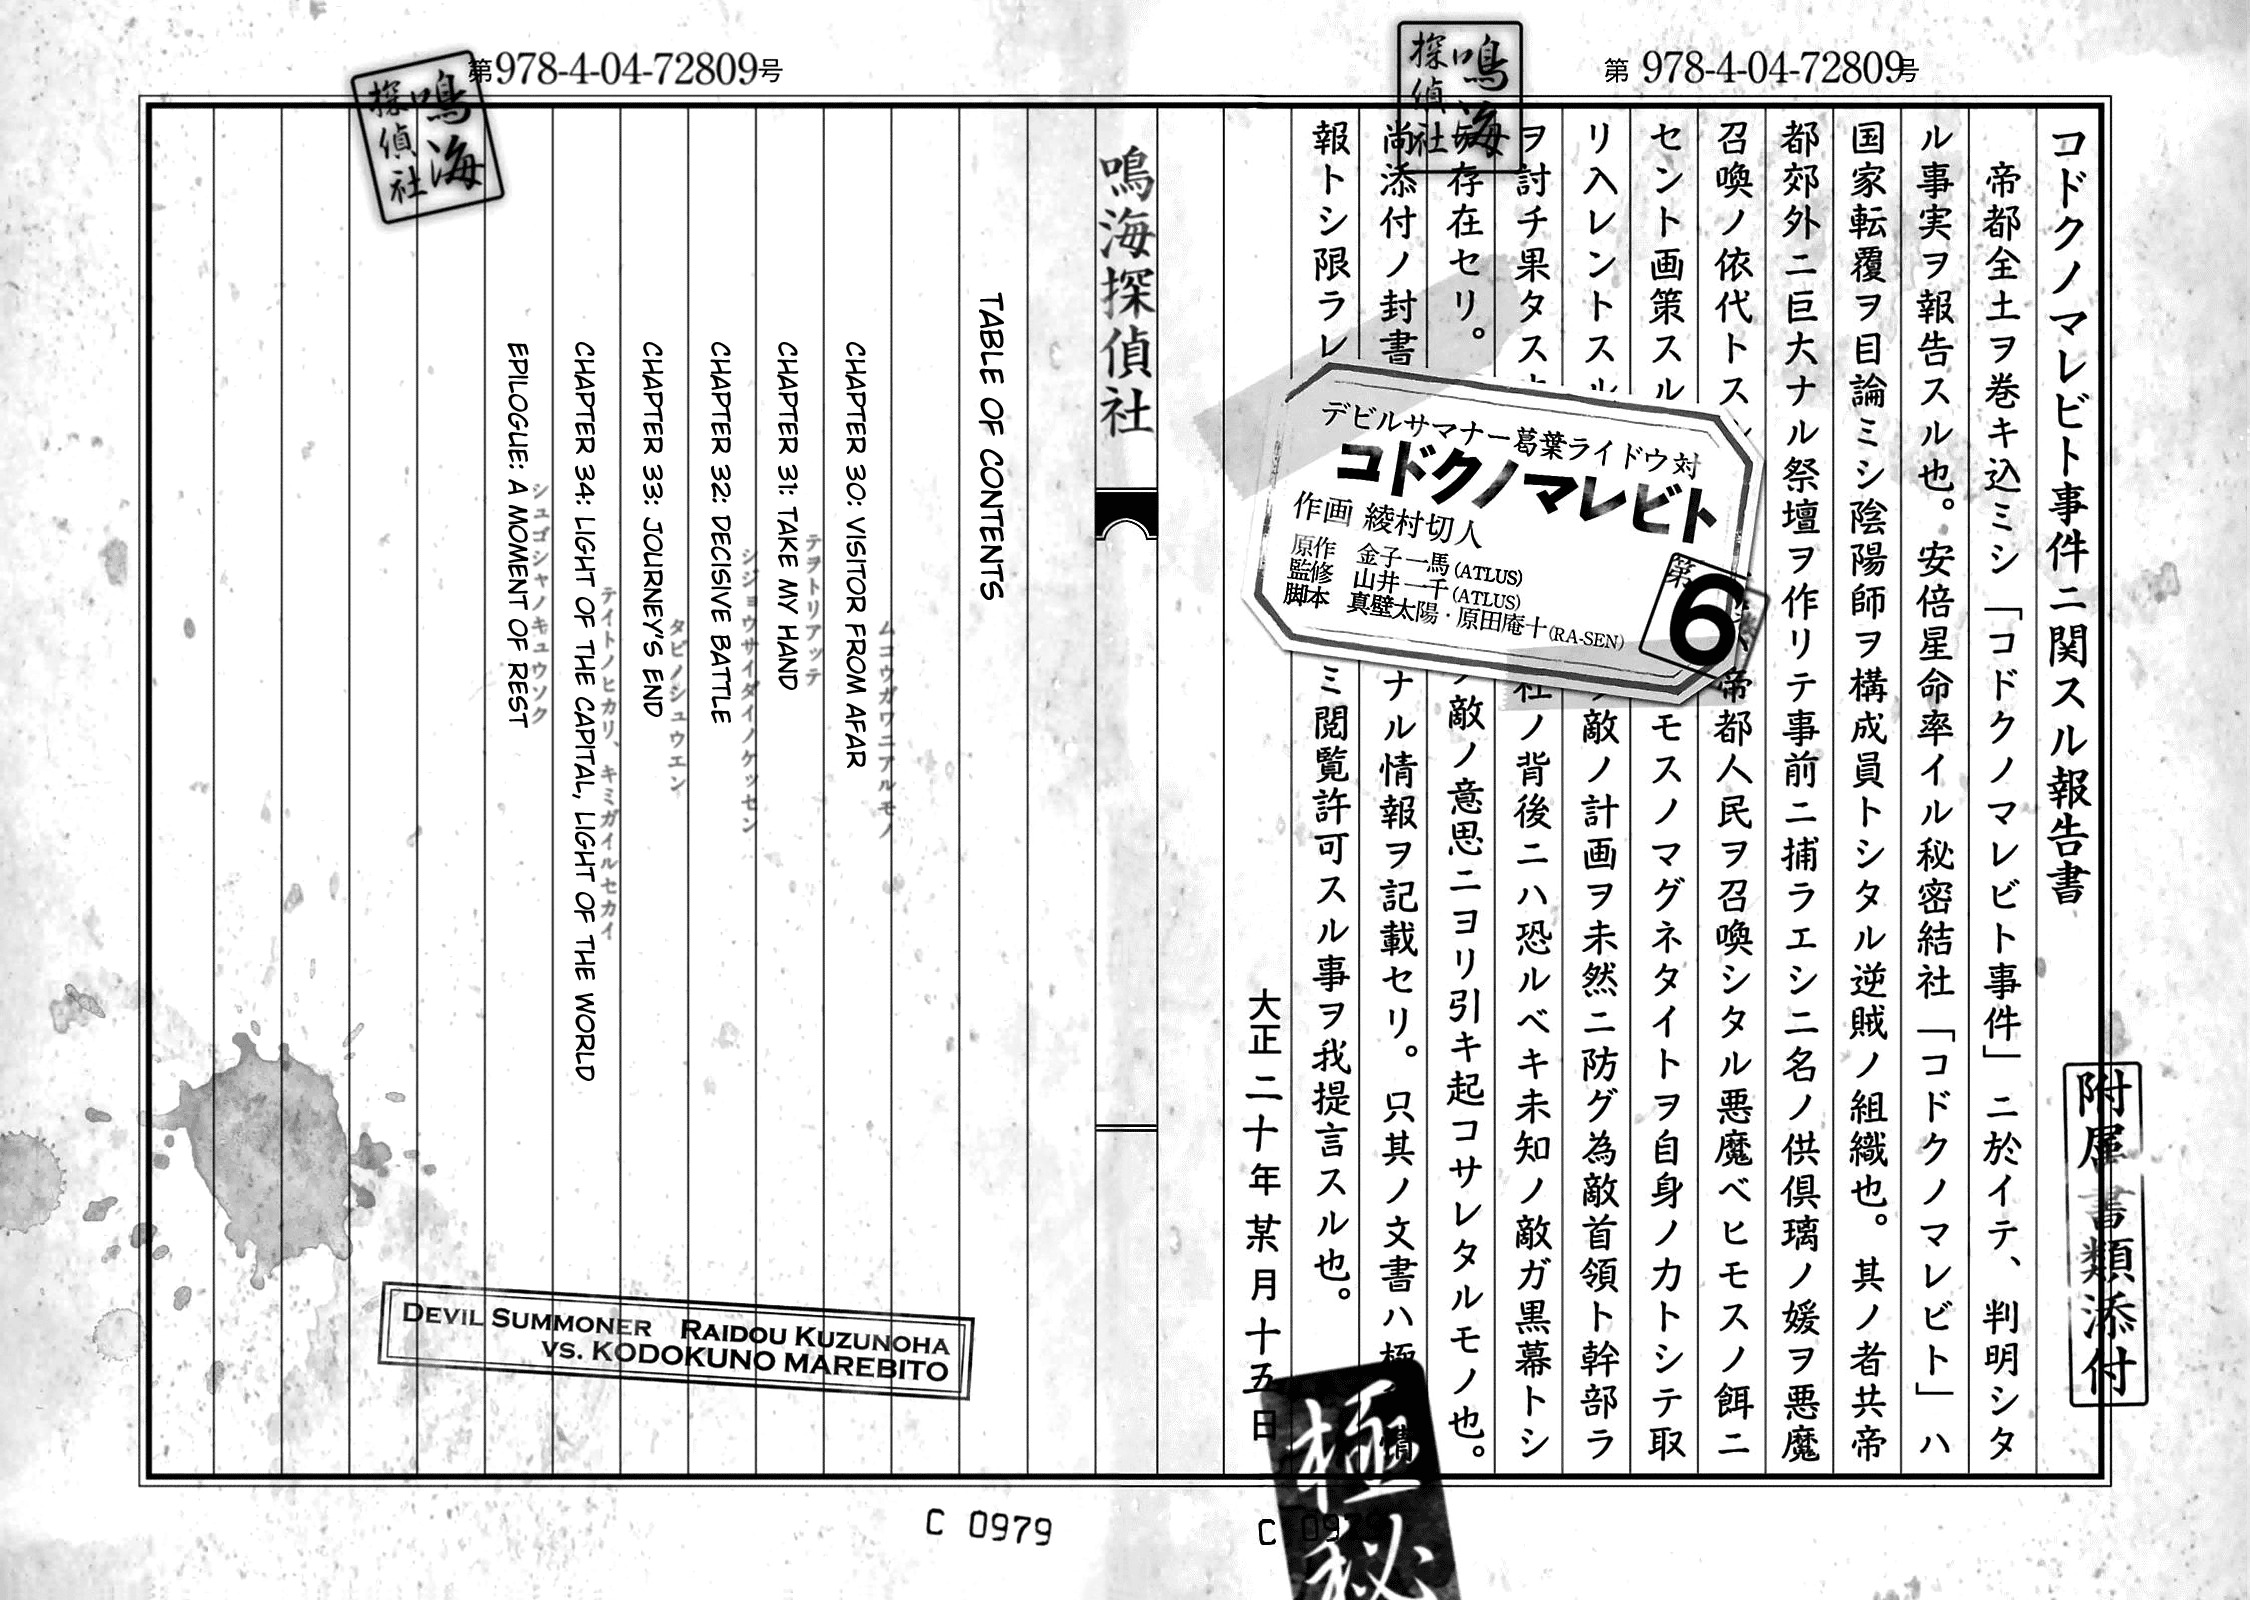 第 978-4-04-72809号
鳴海
探偵社
コドクノマレビト事件ニ関スル報告書
帝都全土ヲ巻キ込ミシ「コドクノマレビト事件」ニ於イテ、判明シタ
ル事実ヲ報告スル也。安倍星命率イル秘密結社「コドクノマレビト」ハ
国家転覆ヲ目論ミシ陰陽師ヲ構成員トシタル逆賊ノ組織也。其ノ者共帝
都郊外ニ巨大ナル祭壇ヲ作リテ事前ニ捕ラエシ二名ノ供倶璃ノ媛ヲ悪魔
召喚ノ依代トス
帝都人民ヲ召喚シタル悪魔ベヒモスノ餌ニ
セント画策スル
モスノマグネタイトヲ自身ノ力トシテ取
リ入レントスル
敵ノ計画ヲ未然ニ防グ為敵首領ト幹部ラ
ヲ討チ果タス
社ノ背後ニハ恐ルベキ未知ノ敵ガ黒幕トシ
存在セリ。
敵ノ意思ニヨリ引キ起コサレタルモノ也。
尚添付ノ封書
ナル情報ヲ記載セリ。只其ノ文書ハ極
報トシ限ラレ
ミ閲覧許可スル事ヲ我提言スル也。
大正二十年某月十五日
附属書類添付
デビルサマナー葛葉ライドウ対
コドクノマレビト
作画 綾村切人
原作 金子一馬(ATLUS)
監修 山井一千(ATLUS)
脚本 真壁太陽・原田庵十(RA-SEN)
第6
極秘
C 0979
第978-4-04-72809号
鳴海
探偵社
鳴海探偵社
TABLE OF CONTENTS
ムコウガワニアルモノ
CHAPTER 30: VISITOR FROM AFAR
テヲトリアッテ
CHAPTER 31: TAKE MY HAND
シジョウサイダイノケッセン
CHAPTER 32: DECISIVE BATTLE
タビノシュウエン
CHAPTER 33: JOURNEY'S END
テイトノヒカリ、キミガイルセカイ
CHAPTER 34: LIGHT OF THE CAPITAL, LIGHT OF THE WORLD
シュゴシャノキュウソク
EPILOGUE: A MOMENT OF REST
DEVIL SUMMONER RAIDOU KUZUNOHA
VS. KODOKUNO MAREBITO
C 0979